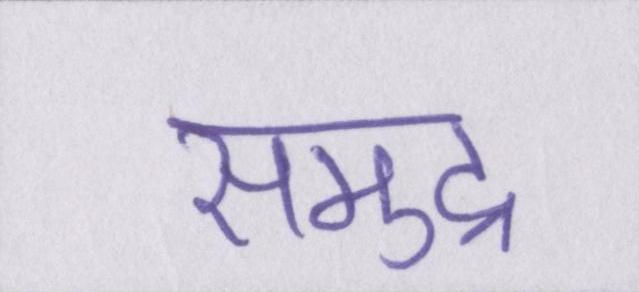 समुद्र